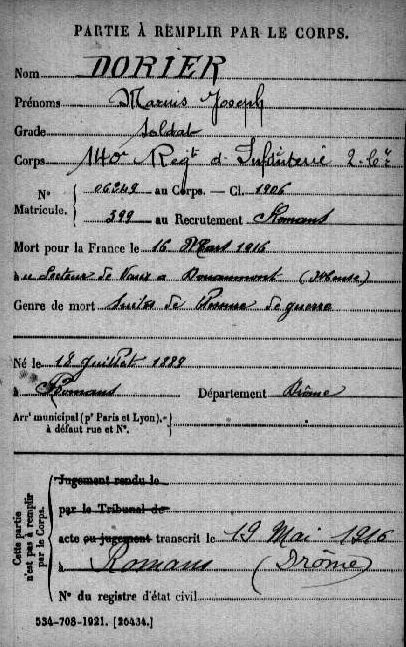 PARTIE À REMPLIR PAR LE CORPS.
Nom DORIER
Prénoms Marius Joseph
Grade Soldat
Corps 140e Regt d'Infanterie
N° Matricule. 06249 au Corps. — Cl. 1906
399 au Recrutement Romans
Mort pour la France le 16 Mars 1916
à Secteur de Vaux Douaumont (Meuse)
Genre de mort Suites de blessures de guerre
Né le 18 Juillet
à Romans Département Drôme
Arrt municipal (pr Paris et Lyon),
à défaut rue et N°.
Cette partie n'est pas à remplir par le Corps.
Jugement rendu le
par le Tribunal de
acte ou jugement transcrit le 19 Mai 1916
à Romans (Drôme)
N° du registre d'état civil
534-708-1921. [26434.]